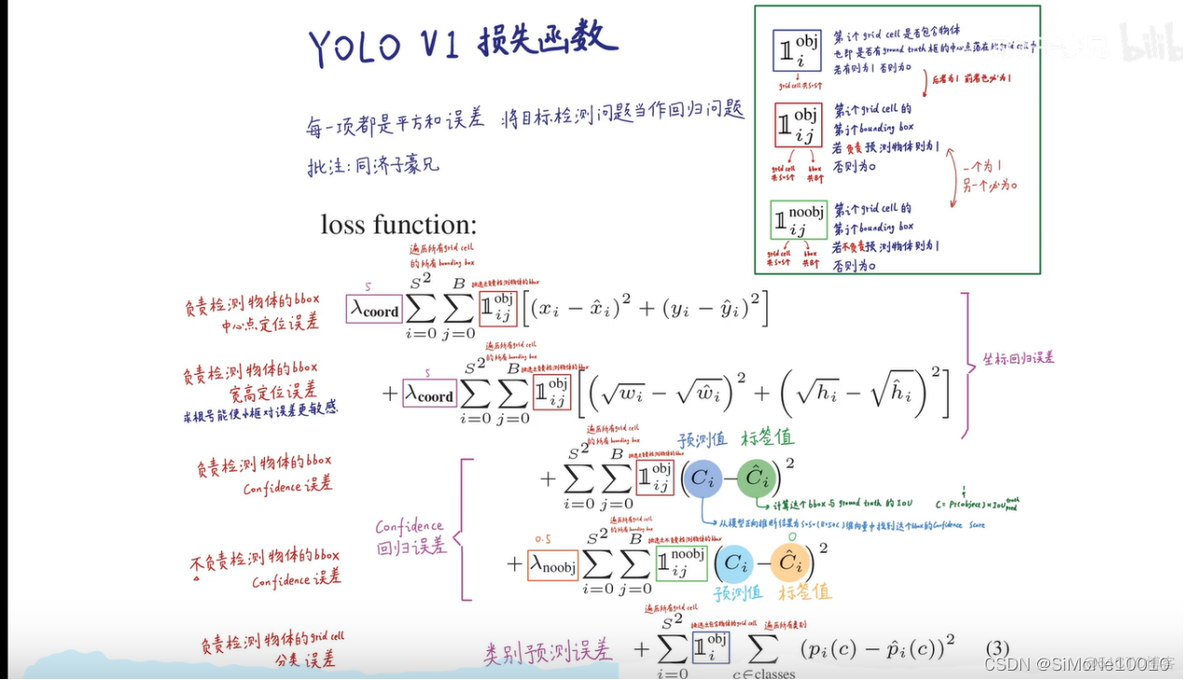 YOLO V1 损失函数
每一项都是平方和误差 将目标检测问题当作回归问题
批注:同济子豪兄
𝟙 obj i
第i个grid cell是否包含物体
也即是否有ground truth框的中心点落在此grid cell中
若有则为1 否则为0
grid cell 共S×S个
后者为1 前者也必为1
𝟙 obj ij
第i个grid cell的
第j个bounding box
若负责预测物体则为1
否则为0
grid cell 共S×S个
bbox 共B个
一个为1
另一个必为0
𝟙 noobj ij
第i个grid cell的
第j个bounding box
若不负责预测物体则为1
否则为0
grid cell 共S×S个
bbox 共B个
loss function:
遍历所有grid cell
的所有bounding box
负责检测物体的bbox
中心点定位误差
5
λcoord ∑_{i=0}^{S²} ∑_{j=0}^{B} 𝟙_{ij}^{obj} [(x_i − x̂_i)² + (y_i − ŷ_i)²]
坐标回归误差
遍历所有grid cell
的所有bounding box
负责检测物体的bbox
宽高定位误差
求根号能使小框对误差更敏感
5
+ λcoord ∑_{i=0}^{S²} ∑_{j=0}^{B} 𝟙_{ij}^{obj} [(√w_i − √ŵ_i)² + (√h_i − √ĥ_i)²]
遍历所有grid cell
的所有bounding box
预测值 标签值
负责检测物体的bbox
Confidence 误差
+ ∑_{i=0}^{S²} ∑_{j=0}^{B} 𝟙_{ij}^{obj} (C_i − Ĉ_i)²
计算这个bbox与ground truth的IoU
从模型正向推断结果为S*S*(B*5+C)维向量中找到这个bbox的Confidence Score
Confidence
回归误差
遍历所有grid cell
的所有bounding box
不负责检测物体的bbox
Confidence 误差
0.5
0
+ λnoobj ∑_{i=0}^{S²} ∑_{j=0}^{B} 𝟙_{ij}^{noobj} (C_i − Ĉ_i)²
预测值 标签值
遍历所有grid cell
遍历所有类别
负责检测物体的grid cell
分类误差
类别预测误差
+ ∑_{i=0}^{S²} 𝟙_i^{obj} ∑_{c∈classes} (p_i(c) − p̂_i(c))² (3)
CSDN @SiMoNe10010